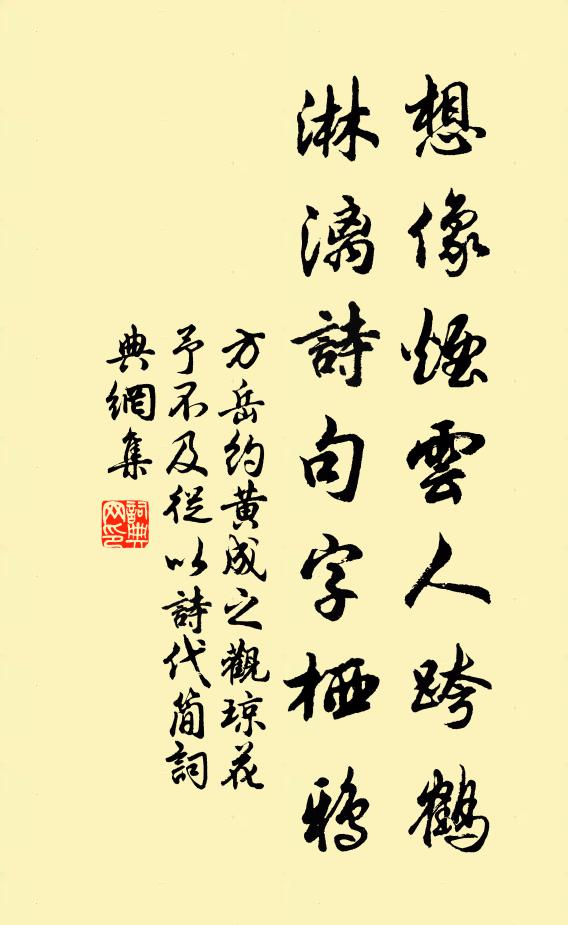 想像煙雲人跨鶴
淋漓詩句字栖鴉
方岳約黄成之觀琼花
予不及從以詩代簡詞
典網集
詞典網印